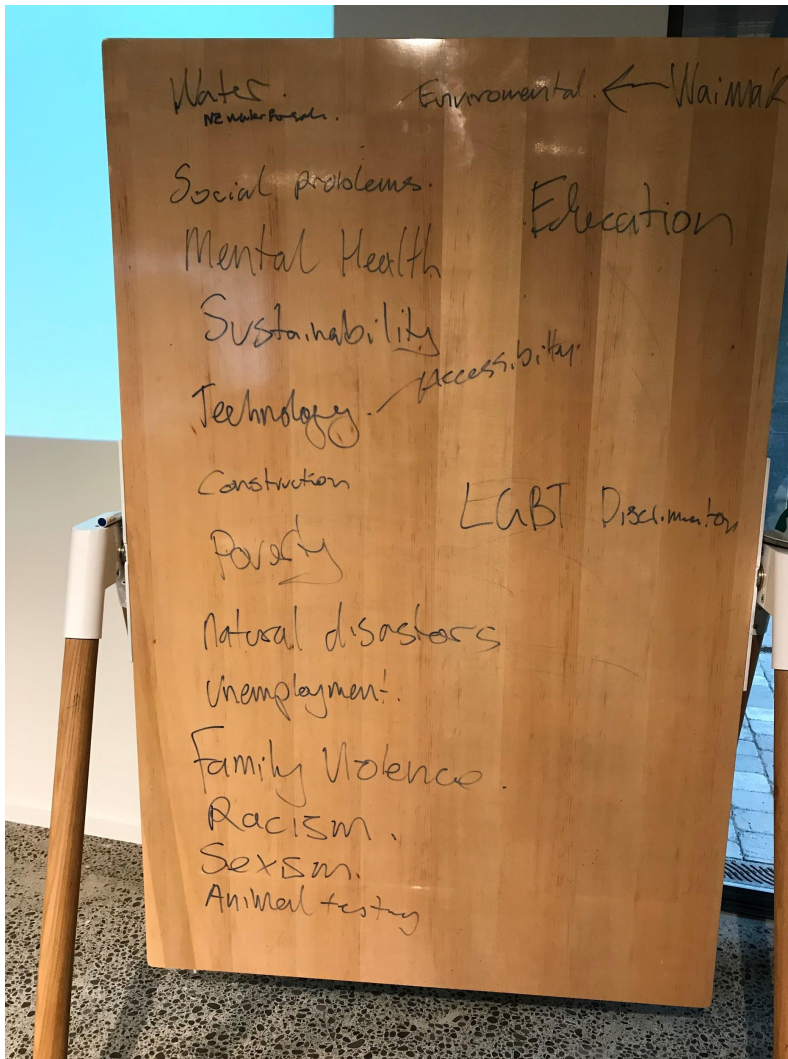 Water. Enviromental. ← Waimak
NZ water
Social problems.
Education
Mental Health
Sustainability
Accessibilty.
Technology.
Construction
LGBT Discrimination
Poverty
Natural disastors
Unemployment.
Family Violence.
Racism.
Sexism.
Animal testing